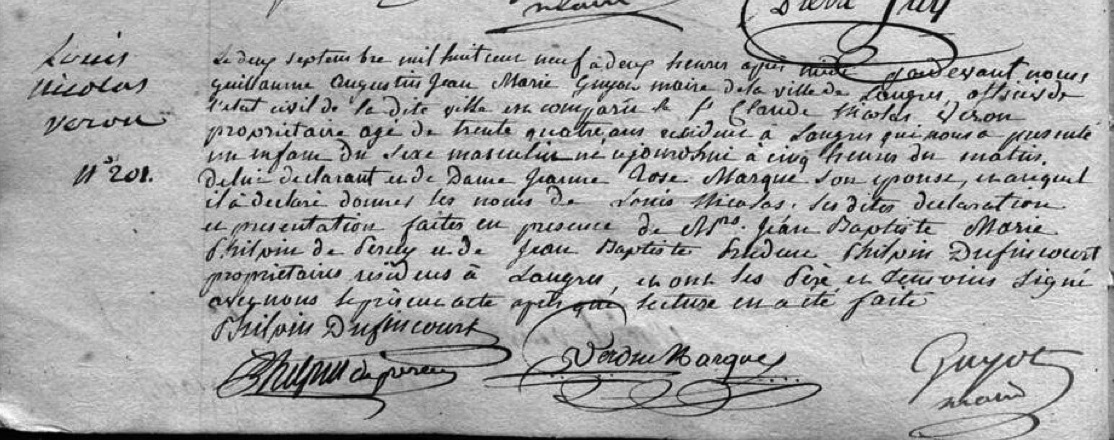 maire
Louis
Nicolas
Veron
N° 201.
Le deux septembre mil huit cent neuf à deux heures après midi pardevant nous
guillaume augustin Jean Marie Guyot maire de la ville de Langres, officier de
l'etat civil de la dite ville est comparu le Sr Claude Nicolas Veron
propriétaire agé de trente quatre ans résident à Langres qui nous a presenté
un enfant du sexe masculin né aujourdhui à cinq heures du matin.
de lui declarant et de Dame Jeanne Rose Marque son epouse, et auquel
il à declaré donner les noms de Louis Nicolas. les dites declaration
et presentation faites en presence de Mrs. Jéan Baptiste Marie
Philpin de Percey et de Jean Baptiste Philpin Dufincourt
propriétaires résidens à Langres, et ont les Pere et temoins signé
avec nous le présent acte après que lecture en a été faite
Philpin Dufincourt
Philpin de percey
Veron Marque
Guyot
maire